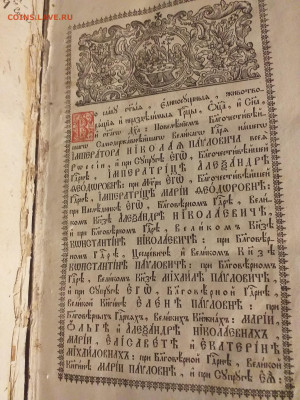 COINS.SU
Во славу ст҃ыѧ, единосущныѧ, животво-
рѧщіѧ и нераздѣлимыѧ Трⷪ҇цы, Ѻ҃ца̀, и Сн҃а,
и ст҃агѡ Дх҃а: Повелѣніемъ Благочестивѣй-
шагѡ Самодержавнѣйшагѡ Великагѡ Гдⷭ҇рѧ нашегѡ
ІМПЕРАТОРА НІКОЛАѦ ПАѴЛОВИЧА всеѧ
Рѡссіи, и при Сꙋпрꙋгѣ ЕГѠ, Благочестивѣйшей
Гдⷭ҇рнѣ, ІМПЕРАТРИЦѢ АЛЕѮАНДРѢ
ѲЕОДОРѠВНѢ: при
ІМПЕРАТРИЦѢ МАРІИ ѲЕОДОРѠВНѢ:
при Наслѣдникѣ ЕГѠ, Благовѣрномъ Гдⷭ҇рѣ, Вели-
комъ Кнѧзѣ АЛЕѮАНДРѢ НІКОЛАЕВИЧѢ,
и при Благовѣрномъ Гдⷭ҇рѣ, Великомъ Кнѧзѣ
КѠНСТАНТІНѢ НІКОЛАЕВИЧѢ: при Благовѣр-
номъ Гдⷭ҇рѣ, Цесаревичѣ и Великомъ Кнѧзѣ
КѠНСТАНТІНѢ ПАѴЛОВИЧѢ: при Благовѣрномъ
Гдⷭ҇рѣ, Великомъ Кнѧзѣ МІХАИЛѢ ПАѴЛОВИЧѢ,
и при Сꙋпрꙋгѣ ЕГѠ, Благовѣрной Гдⷭ҇рнѣ,
Великой Кнѧгинѣ ЕЛЕНѢ ПАѴЛОВНѢ: при
Благовѣрныхъ Гдⷭ҇рнѧхъ, Великихъ Кнѧжнахъ: МАРІИ,
ОЛЬГѢ и АЛЕѮАНДРѢ НІКОЛАЕВНАХЪ
МАРІИ, ЕЛІСАВЕТѢ и ЕКАТЕРІНѢ
МІХАИЛОВНАХЪ: при Благовѣрной Гдⷭ҇рнѣ, Великой
Кнѧгинѣ МАРІИ ПАѴЛОВНѢ, и при Сꙋпрꙋгѣ ЕѦ